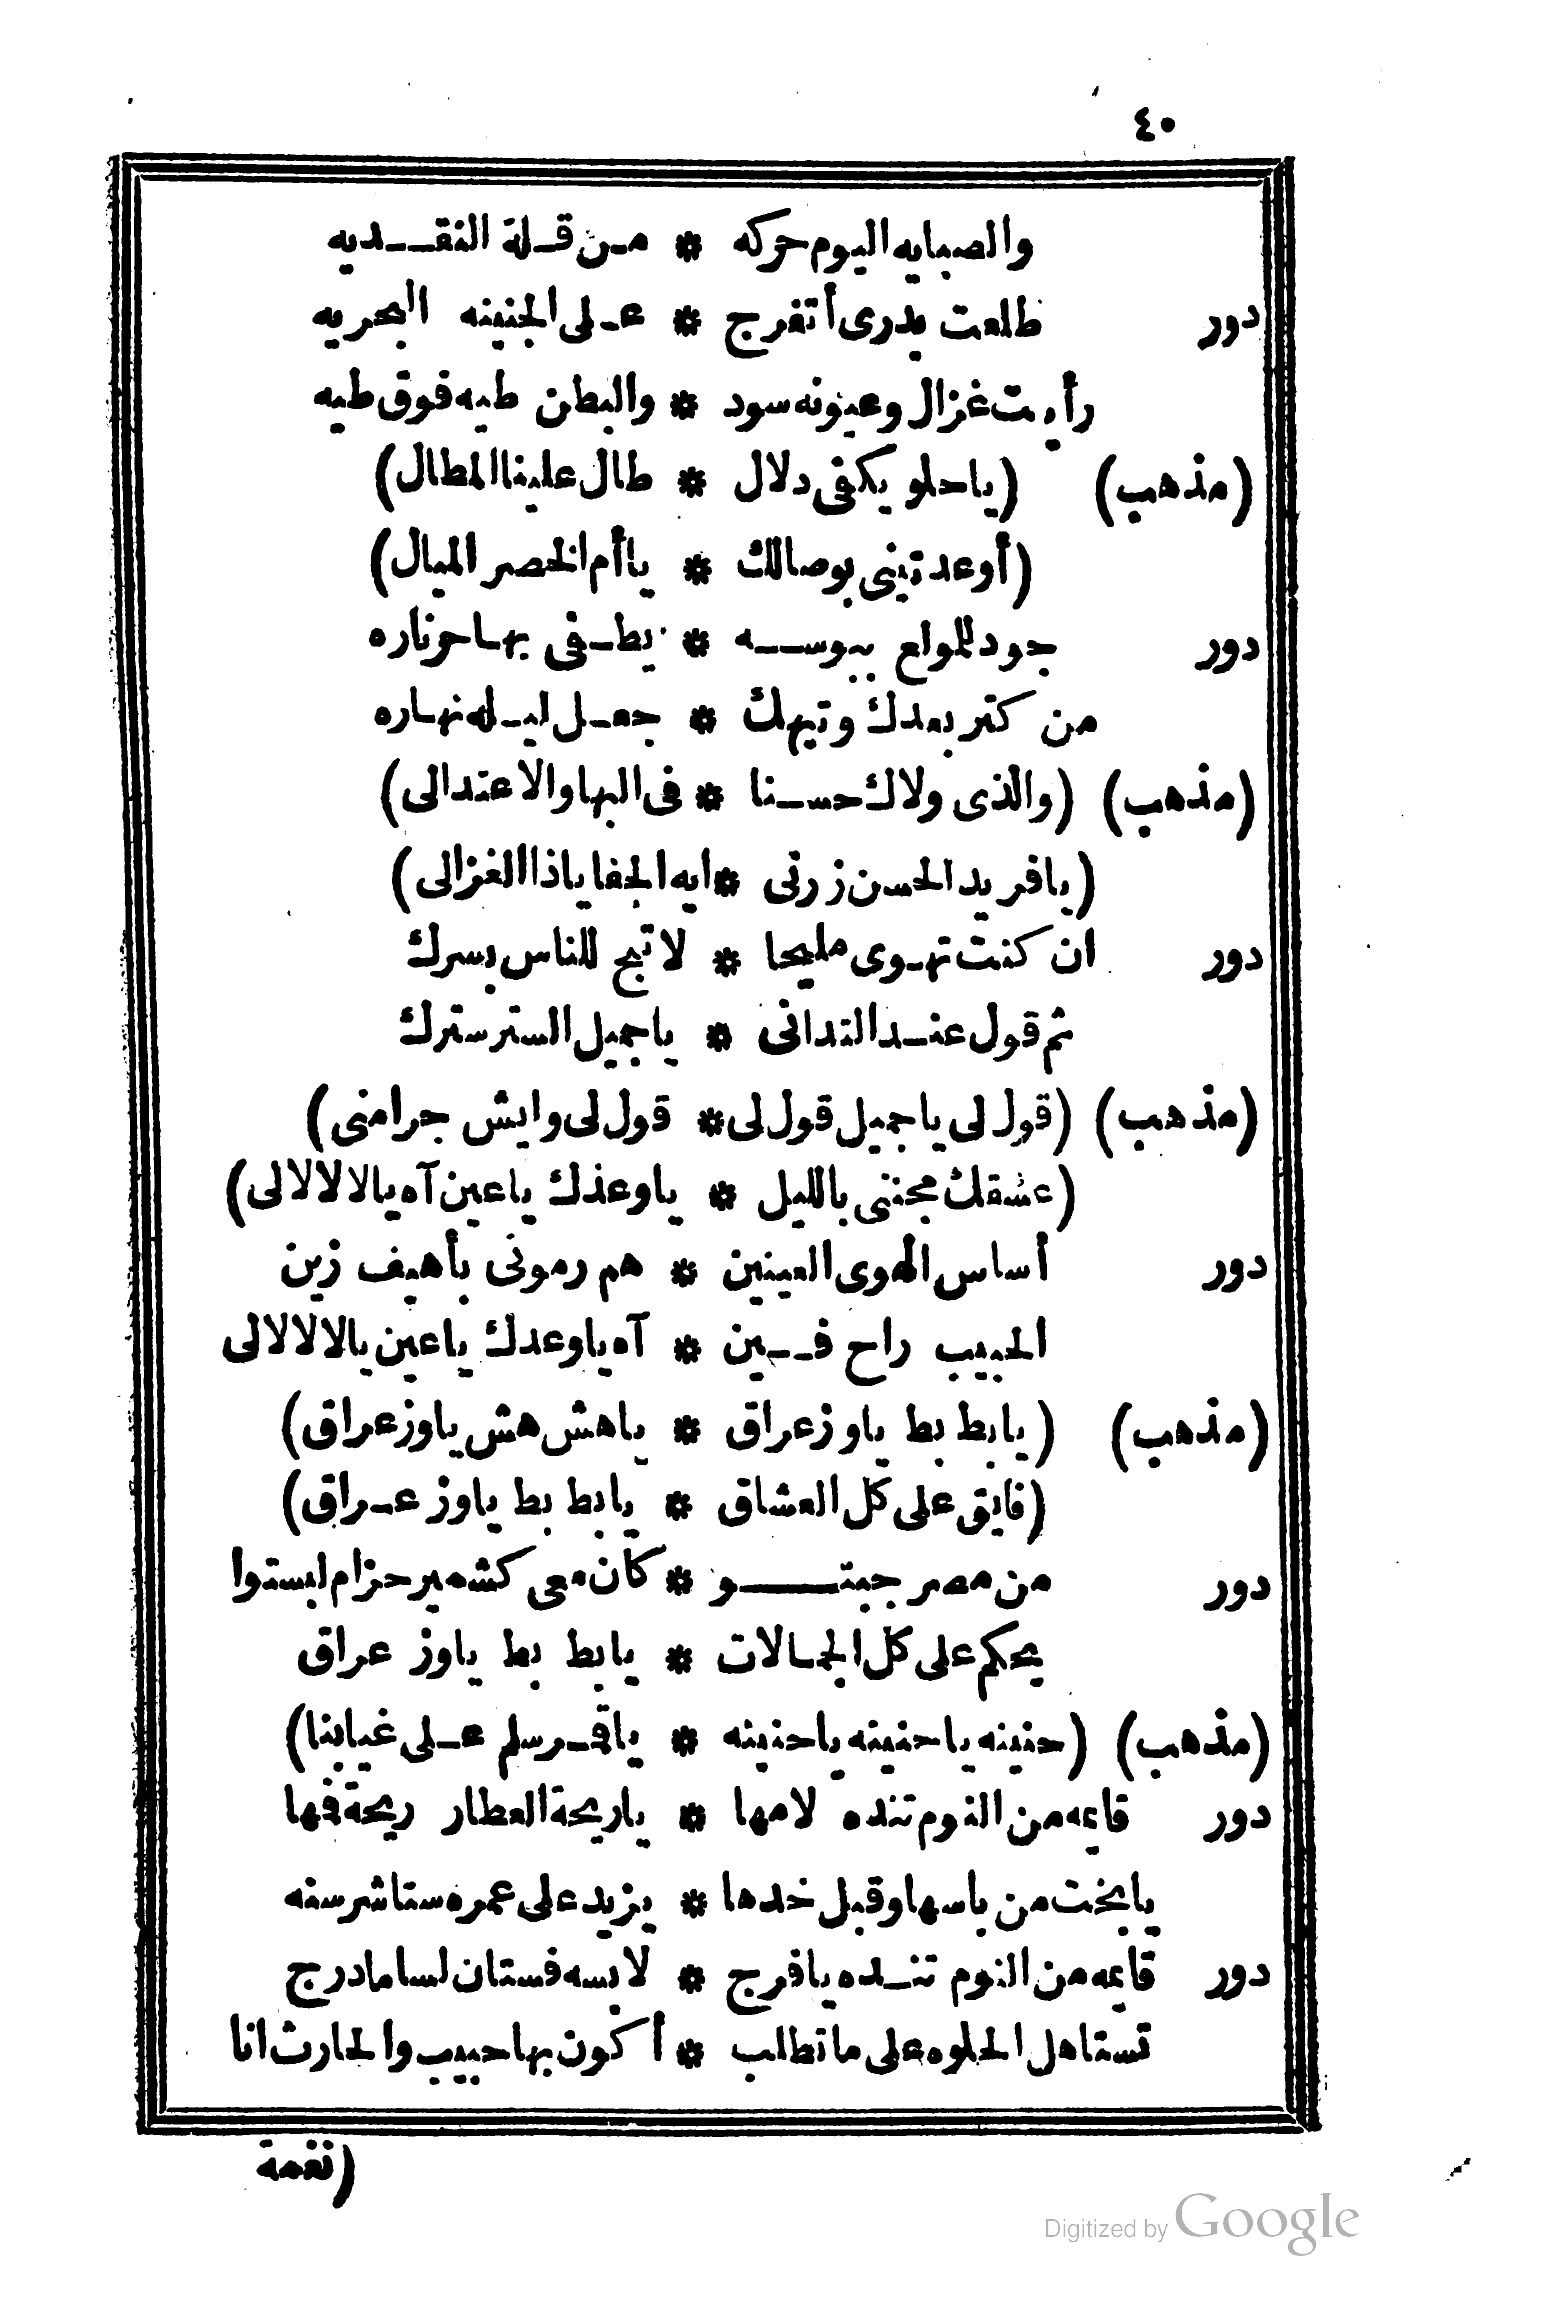 ٤٠
والصبايه اليوم حركه * من قلة النقديه
دور طلعت بدرى أتفرج * على الجنينه البحريه
رأيت غزال وعيونه سود * والبطن طيه فوق طيه
(مذهب) (ياحلو يكفى دلال * طال علينا المطال)
(أوعدتينى بوصالك * ياأم الخصر الميال)
دور جود للمولع ببوسه * يطفى بها حرناره
من كتر بعدك وتيهك * جعل ليله نهاره
(مذهب) (والذى ولاك حسنا * فى البها والاعتدالى)
(يافريد الحسن زرنى * ايه الجفا ياذا الغزالى)
دور ان كنت تهوى مليحا * لاتبح للناس بسرك
ثم قول عند التدانى * ياجميل الستر سترك
(مذهب) (قول لى ياجميل قول لى * قول لى وايش جرامنى)
(عشقك مجننى بالليل * ياوعدك ياعين آه يالالالالى)
دور أساس الهوى العينين * هم رمونى بأهيف زين
الحبيب راح فين * آه ياوعدك ياعين يالالالالى
(مذهب) (يابط بط ياوز عراق * ياهش هش ياوز عراق)
(فايق على كل العشاق * يابط بط ياوز عراق)
دور من مصر جبتو * كان معى كشمير حزام لبستوا
يحكم على كل الجمالات * يابط بط ياوز عراق
(مذهب) (حنينه ياحنينه ياحنينه * ياقمر سلم على غيابنا)
دور قايمه من النوم تنده لامها * ياريحة العطار ريحة فها
يابخت من باسها وقبل خدها * يزيد على عمره ستاشر سنه
دور قايمه من النوم تنده يافرج * لابسه فستان لسا مادرج
تستاهل الحلوه على ماتطلب * أكون بها حبيب والحارث انا
(نغمة
Digitized by Google